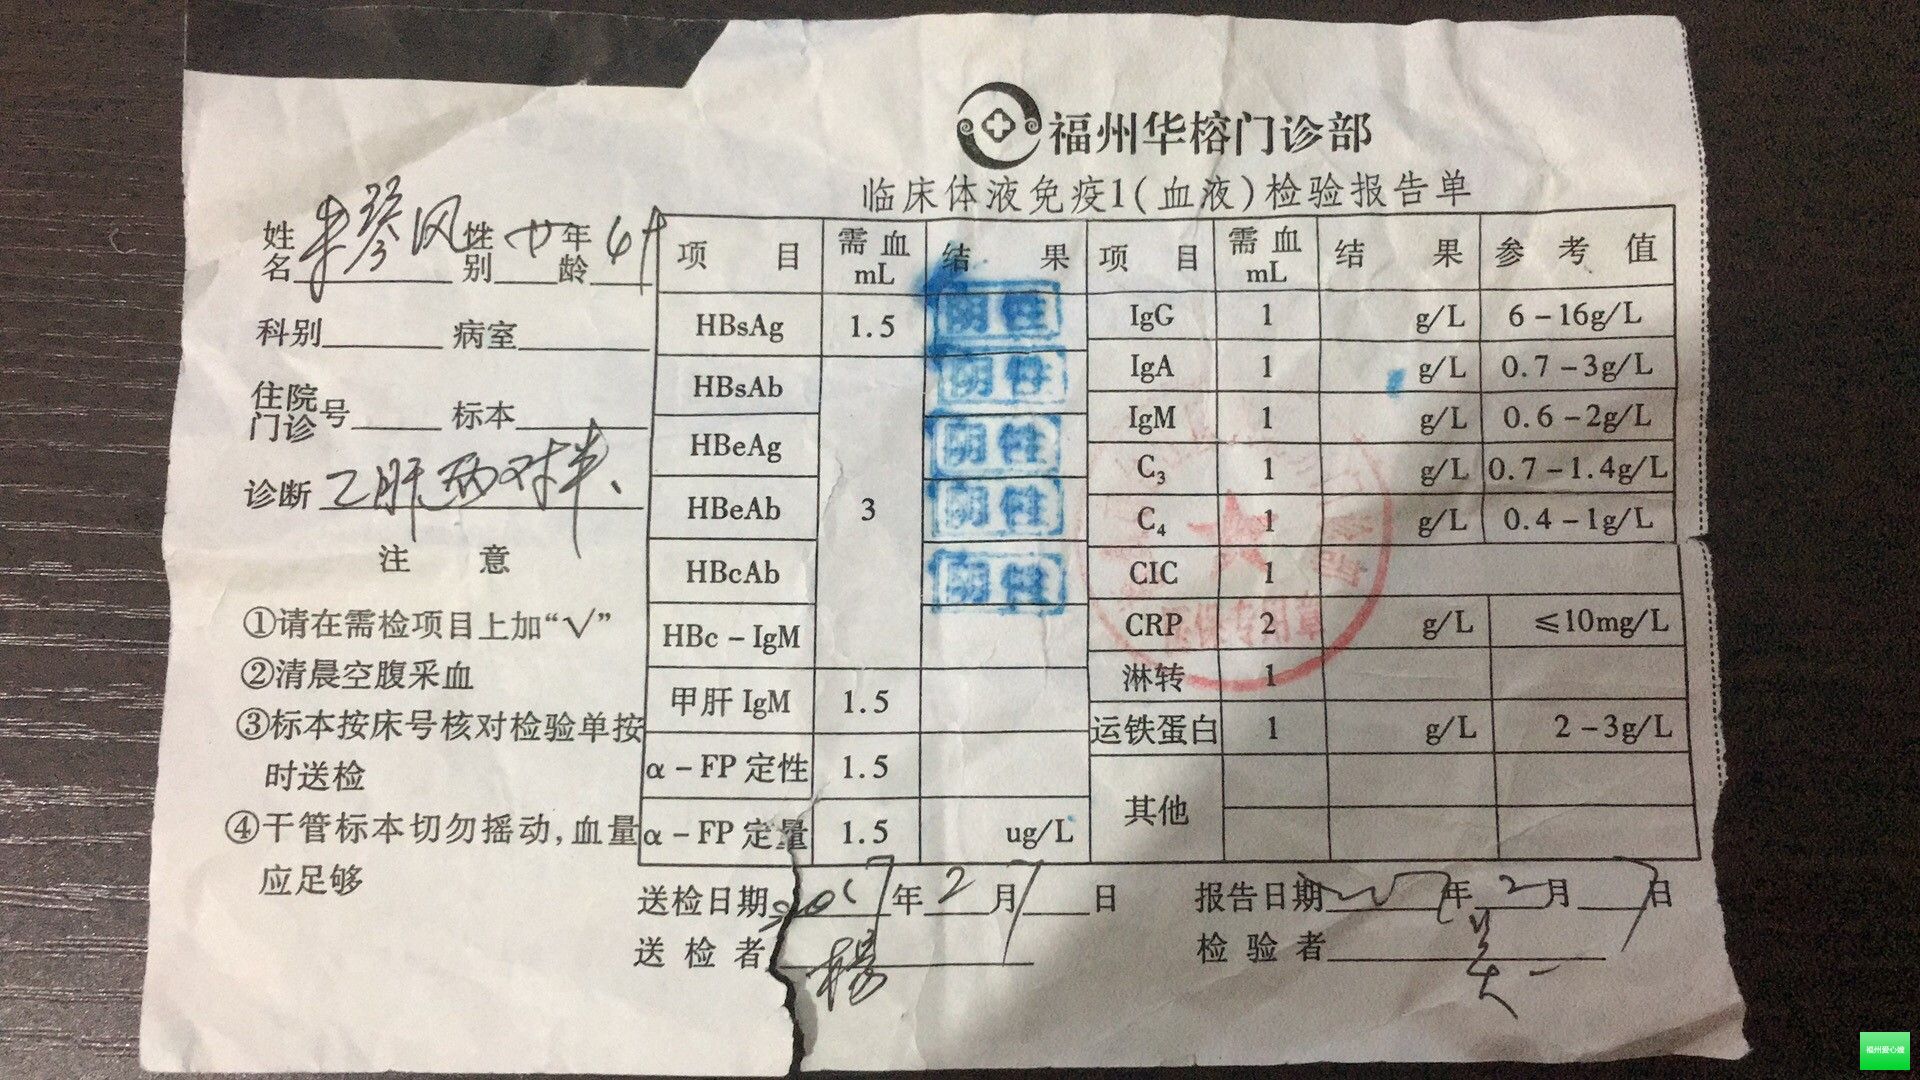 福州华榕门诊部
临床体液免疫1(血液)检验报告单
姓名 性别 女 年龄
科别 病室
住院门诊号 标本
诊断 乙肝两对半、
注 意
①请在需检项目上加“√”
②清晨空腹采血
③标本按床号核对检验单按
时送检
④干管标本切勿摇动,血量
应足够
项目 需血mL 结果 项目 需血mL 结果 参考值
HBsAg 1.5 阴性 IgG 1 g/L 6-16g/L
HBsAb 3 阴性 IgA 1 g/L 0.7-3g/L
HBeAg 阴性 IgM 1 g/L 0.6-2g/L
C3 1 g/L 0.7-1.4g/L
HBeAb 阴性 C4 1 g/L 0.4-1g/L
HBcAb 阴性 CIC 1
HBc-IgM CRP 2 g/L ≤10mg/L
淋转 1
甲肝IgM 1.5 运铁蛋白 1 g/L 2-3g/L
α-FP定性 1.5 其他
α-FP定量 1.5 ug/L
送检日期 2017年2月7日 报告日期 年2月7日
送检者 杨 检验者 吴
福州爱心嫂